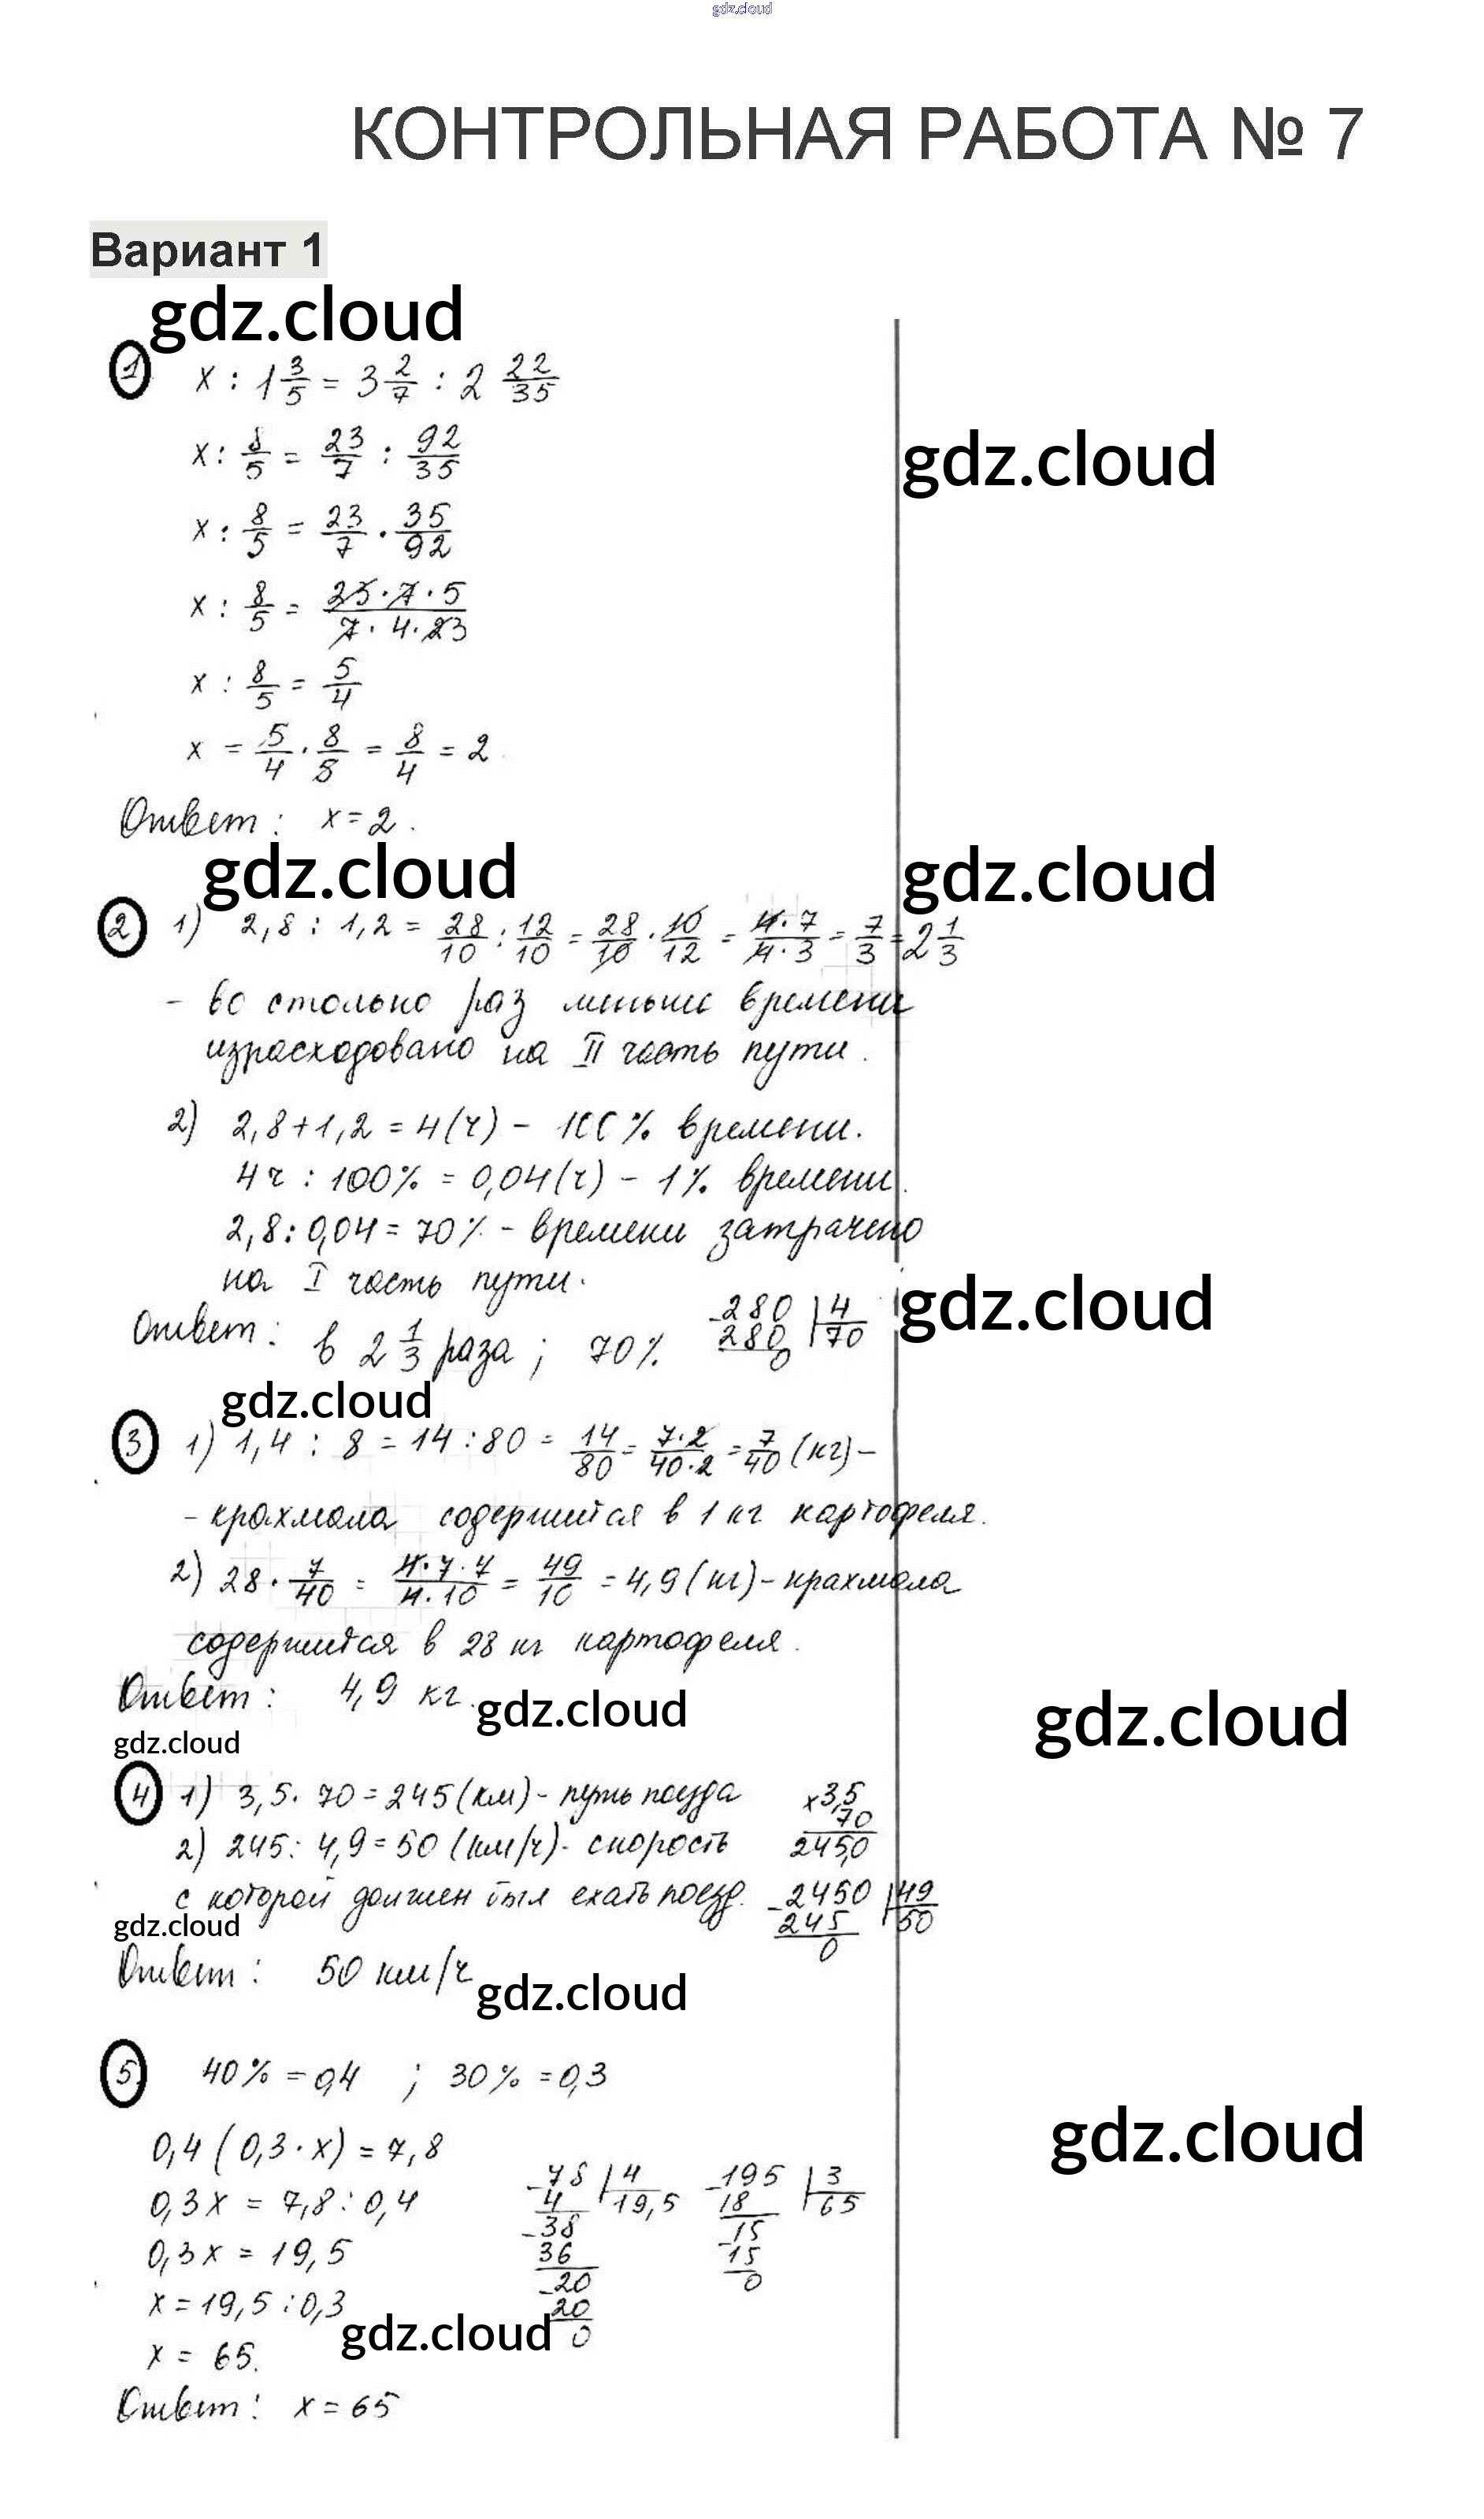 gdz.cloud
КОНТРОЛЬНАЯ РАБОТА № 7
Вариант 1
gdz.cloud
1 x : 1 3/5 = 3 2/7 : 2 22/35
x : 8/5 = 23/7 : 92/35
gdz.cloud
x : 8/5 = 23/7 · 35/92
x : 8/5 = 23·7·5/7·4·23
x : 8/5 = 5/4
x = 5/4 · 8/5 = 8/4 = 2
Ответ: x=2.
gdz.cloud gdz.cloud
2 1) 2,8 : 1,2 = 28/10 : 12/10 = 28/10 · 10/12 = 4·7/4·3 = 7/3 = 2 1/3
- во столько раз меньше времени
израсходовано на II часть пути.
2) 2,8+1,2 = 4(ч) - 100% времени.
4ч : 100% = 0,04(ч) - 1% времени.
2,8 : 0,04 = 70% - времени затрачено
на I часть пути.
Ответ: в 2 1/3 раза; 70%
-280 | 4
280 | 70
0
gdz.cloud
gdz.cloud
3 1) 1,4 : 8 = 14 : 80 = 14/80 = 7·2/40·2 = 7/40 (кг) -
- крахмала содержится в 1 кг картофеля.
2) 28 · 7/40 = 4·7·7/4·10 = 49/10 = 4,9 (кг) - крахмала
содержится в 28 кг картофеля.
Ответ: 4,9 кг.
gdz.cloud gdz.cloud
gdz.cloud
4 1) 3,5 · 70 = 245 (км) - путь поезда
2) 245 : 4,9 = 50 (км/ч) - скорость
с которой должен был ехать поезд.
x3,5
70
245,0
-2450 | 49
245 | 50
0
gdz.cloud
Ответ: 50 км/ч
gdz.cloud
5 40% = 0,4 ; 30% = 0,3
0,4 (0,3 · x) = 7,8
gdz.cloud
0,3x = 7,8 : 0,4
0,3x = 19,5
x = 19,5 : 0,3
x = 65.
-78 | 4
4 | 19,5
-38
36
-20
20
0
-195 | 3
18 | 65
-15
15
0
gdz.cloud
Ответ: x = 65